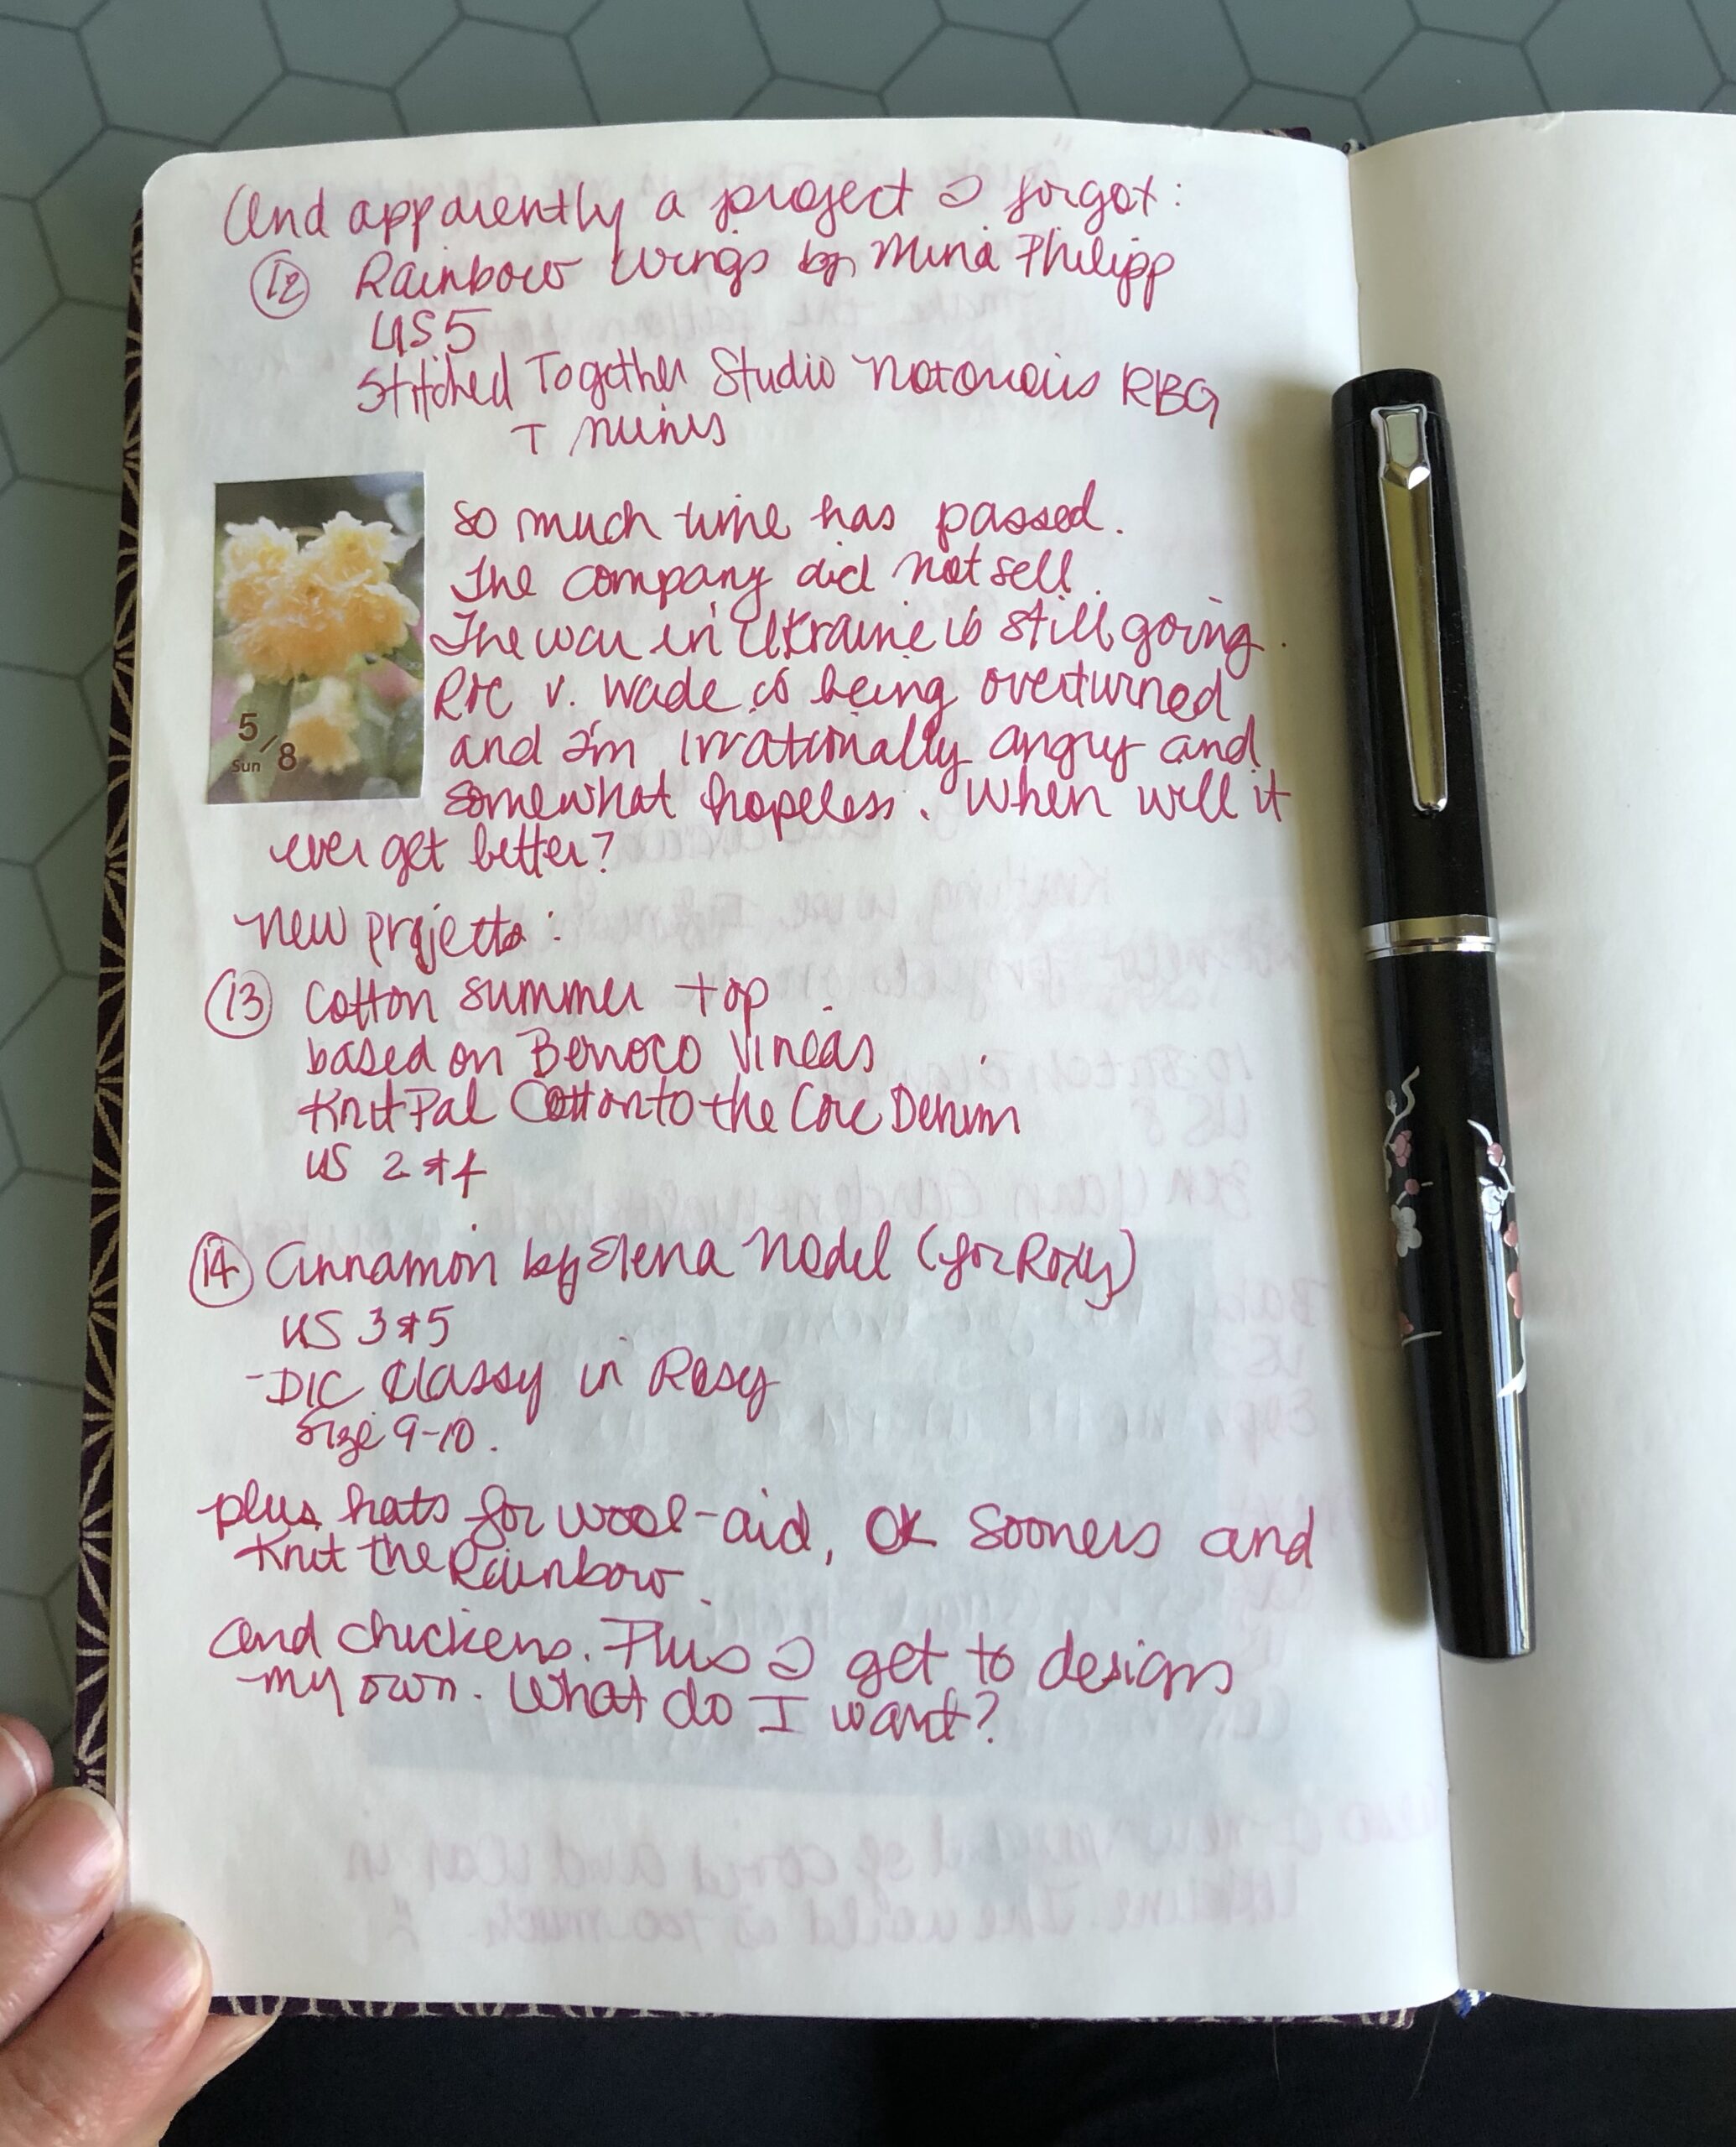 And apparently a project I forgot:
12 Rainbow Wings by Mina Philipp
US 5
Stitched Together Studio Notorious RBG
+ minis
5/8
Sun
So much time has passed.
The company did not sell.
The war in Ukraine is still going.
Roe v. Wade is being overturned
and I'm irrationally angry and
somewhat hopeless. When will it
ever get better?
New projects:
13 Cotton summer top
based on Berroco Vineas
KnitPal Cotton to the Core Denim
US 2 & 4
14 Cinnamon by Elena Nodel (for Roxy)
US 3 & 5
- DIC Classy in Rosy
Size 9-10.
plus hats for wool-aid, OK Sooners and
Knit the Rainbow.
And chickens. Plus I get to design
my own. What do I want?